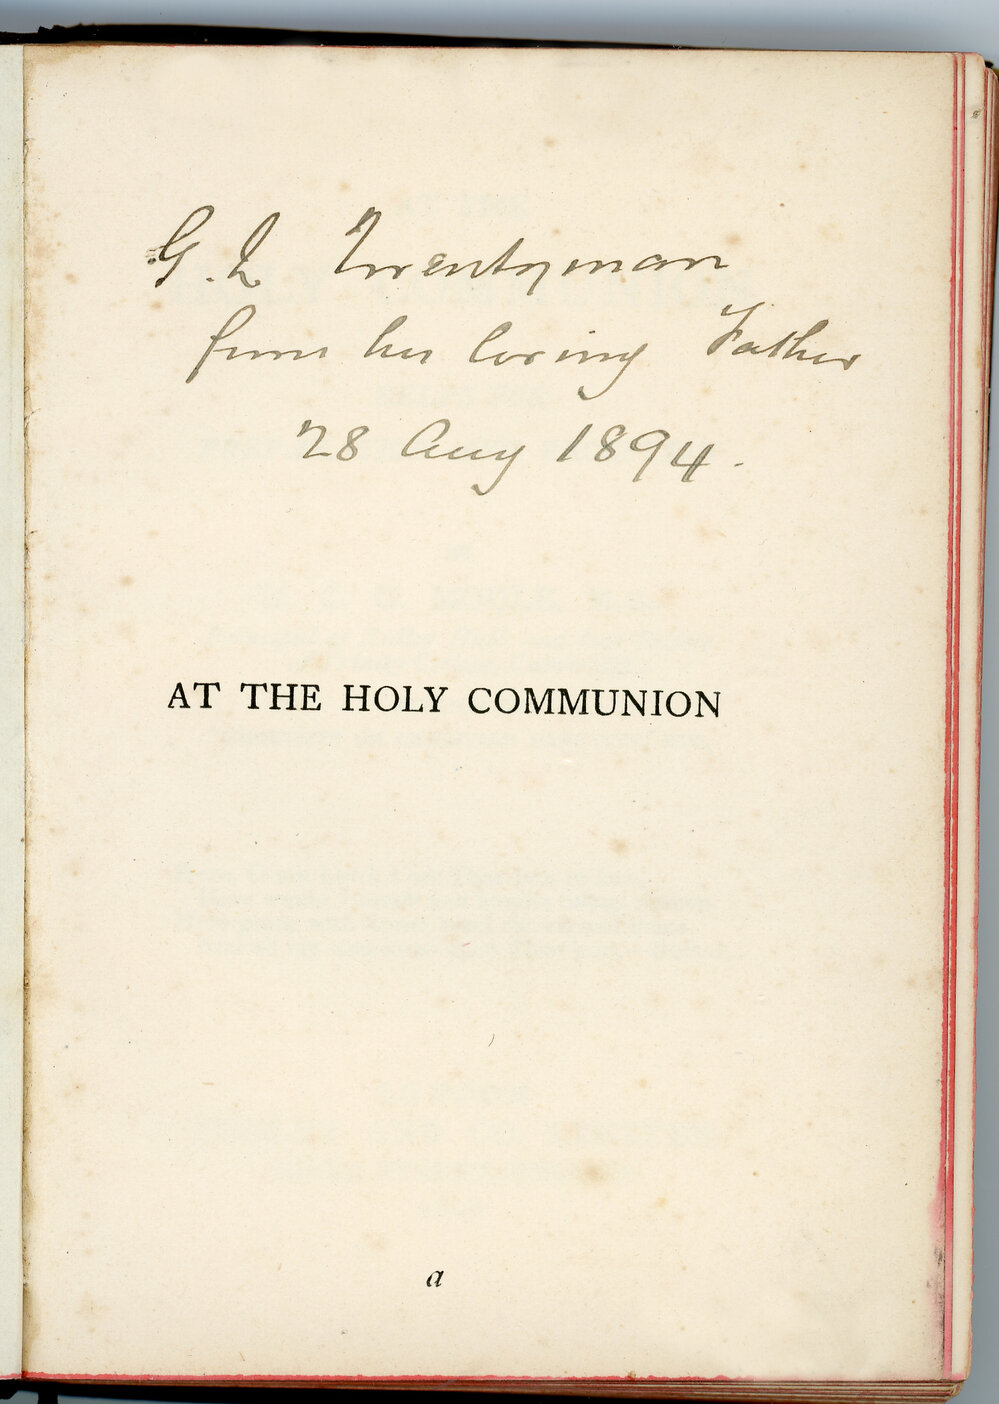 G. L Twentyman
from his loving Father
28 Aug 1894.
AT THE HOLY COMMUNION
a